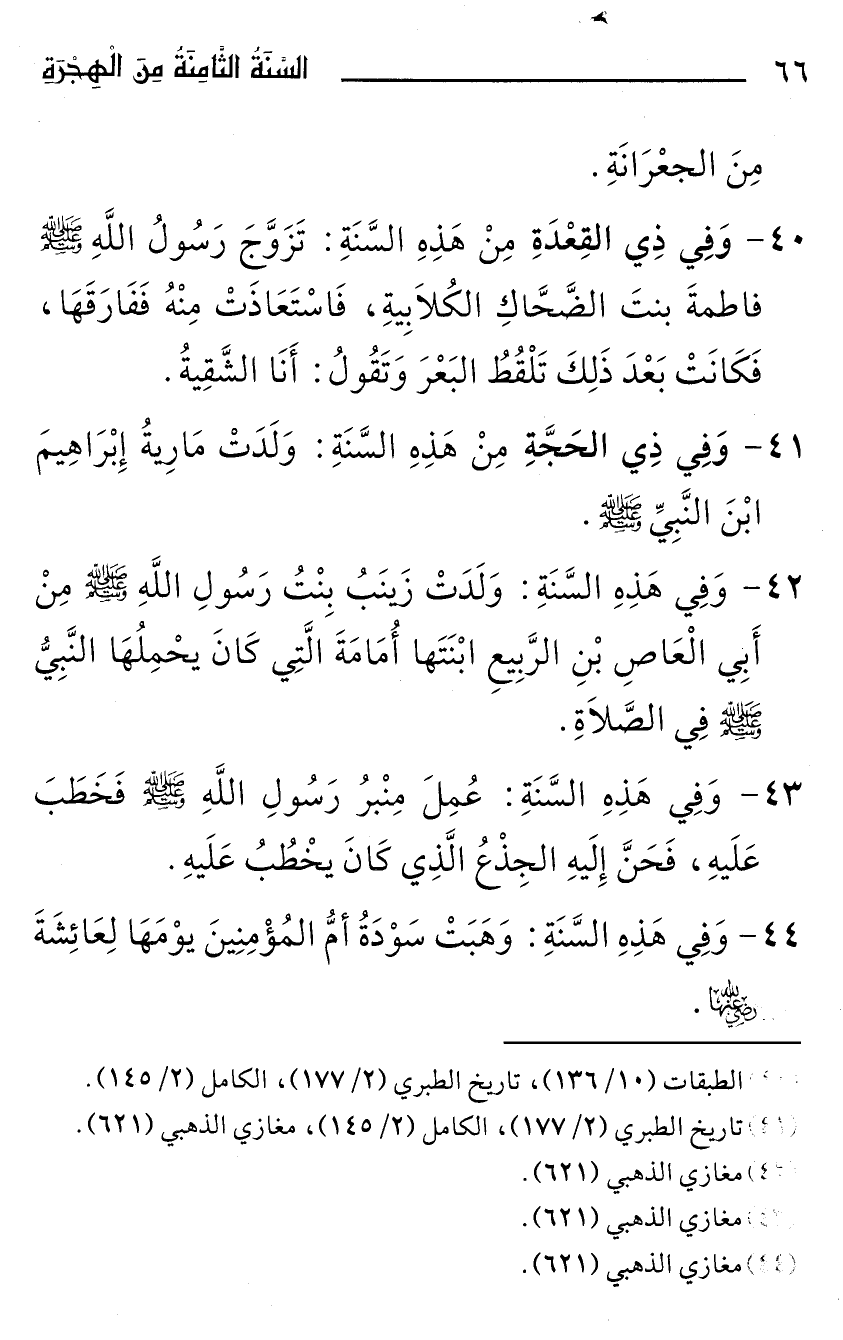 ٦٦ السَّنَةُ الثَّامِنَةُ مِنَ الْهِجْرَةِ
مِنَ الجعْرَانَةِ.
٤٠- وَفِي ذِي القِعْدَةِ مِنْ هَذِهِ السَّنَةِ: تَزَوَّجَ رَسُولُ اللَّهِ ﷺ
فاطمةَ بنتَ الضَّحَّاكِ الكُلاَبِيةِ، فَاسْتَعَاذَتْ مِنْهُ فَفَارَقَهَا،
فَكَانَتْ بَعْدَ ذَلِكَ تَلْقُطُ البَعْرَ وَتَقُولُ: أَنَا الشَّقِيةُ.
٤١- وَفِي ذِي الحَجَّةِ مِنْ هَذِهِ السَّنَةِ: وَلَدَتْ مَارِيةُ إِبْرَاهِيمَ
ابْنَ النَّبِيِّ ﷺ.
٤٢- وَفِي هَذِهِ السَّنَةِ: وَلَدَتْ زَينَبُ بِنْتُ رَسُولِ اللَّهِ ﷺ مِنْ
أَبِي الْعَاصِ بْنِ الرَّبِيعِ ابْنَتَها أُمَامَةَ الَّتِي كَانَ يحْمِلُهَا النَّبِيُّ
ﷺ فِي الصَّلاَةِ.
٤٣- وَفِي هَذِهِ السَّنَةِ: عُمِلَ مِنْبرُ رَسُولِ اللَّهِ ﷺ فَخَطَبَ
عَلَيهِ، فَحَنَّ إِلَيهِ الجِذْعُ الَّذِي كَانَ يخْطُبُ عَلَيهِ.
٤٤- وَفِي هَذِهِ السَّنَةِ: وَهَبَتْ سَوْدَةُ أمُّ المُؤْمِنِينَ يوْمَهَا لِعَائِشَةَ
رضي الله عنها.
الطبقات (١٠/ ١٣٦)، تاريخ الطبري (٢/ ١٧٧)، الكامل (٢/ ١٤٥).
(٤١) تاريخ الطبري (٢/ ١٧٧)، الكامل (٢/ ١٤٥)، مغازي الذهبي (٦٢١).
مغازي الذهبي (٦٢١).
مغازي الذهبي (٦٢١).
(٤٤) مغازي الذهبي (٦٢١).